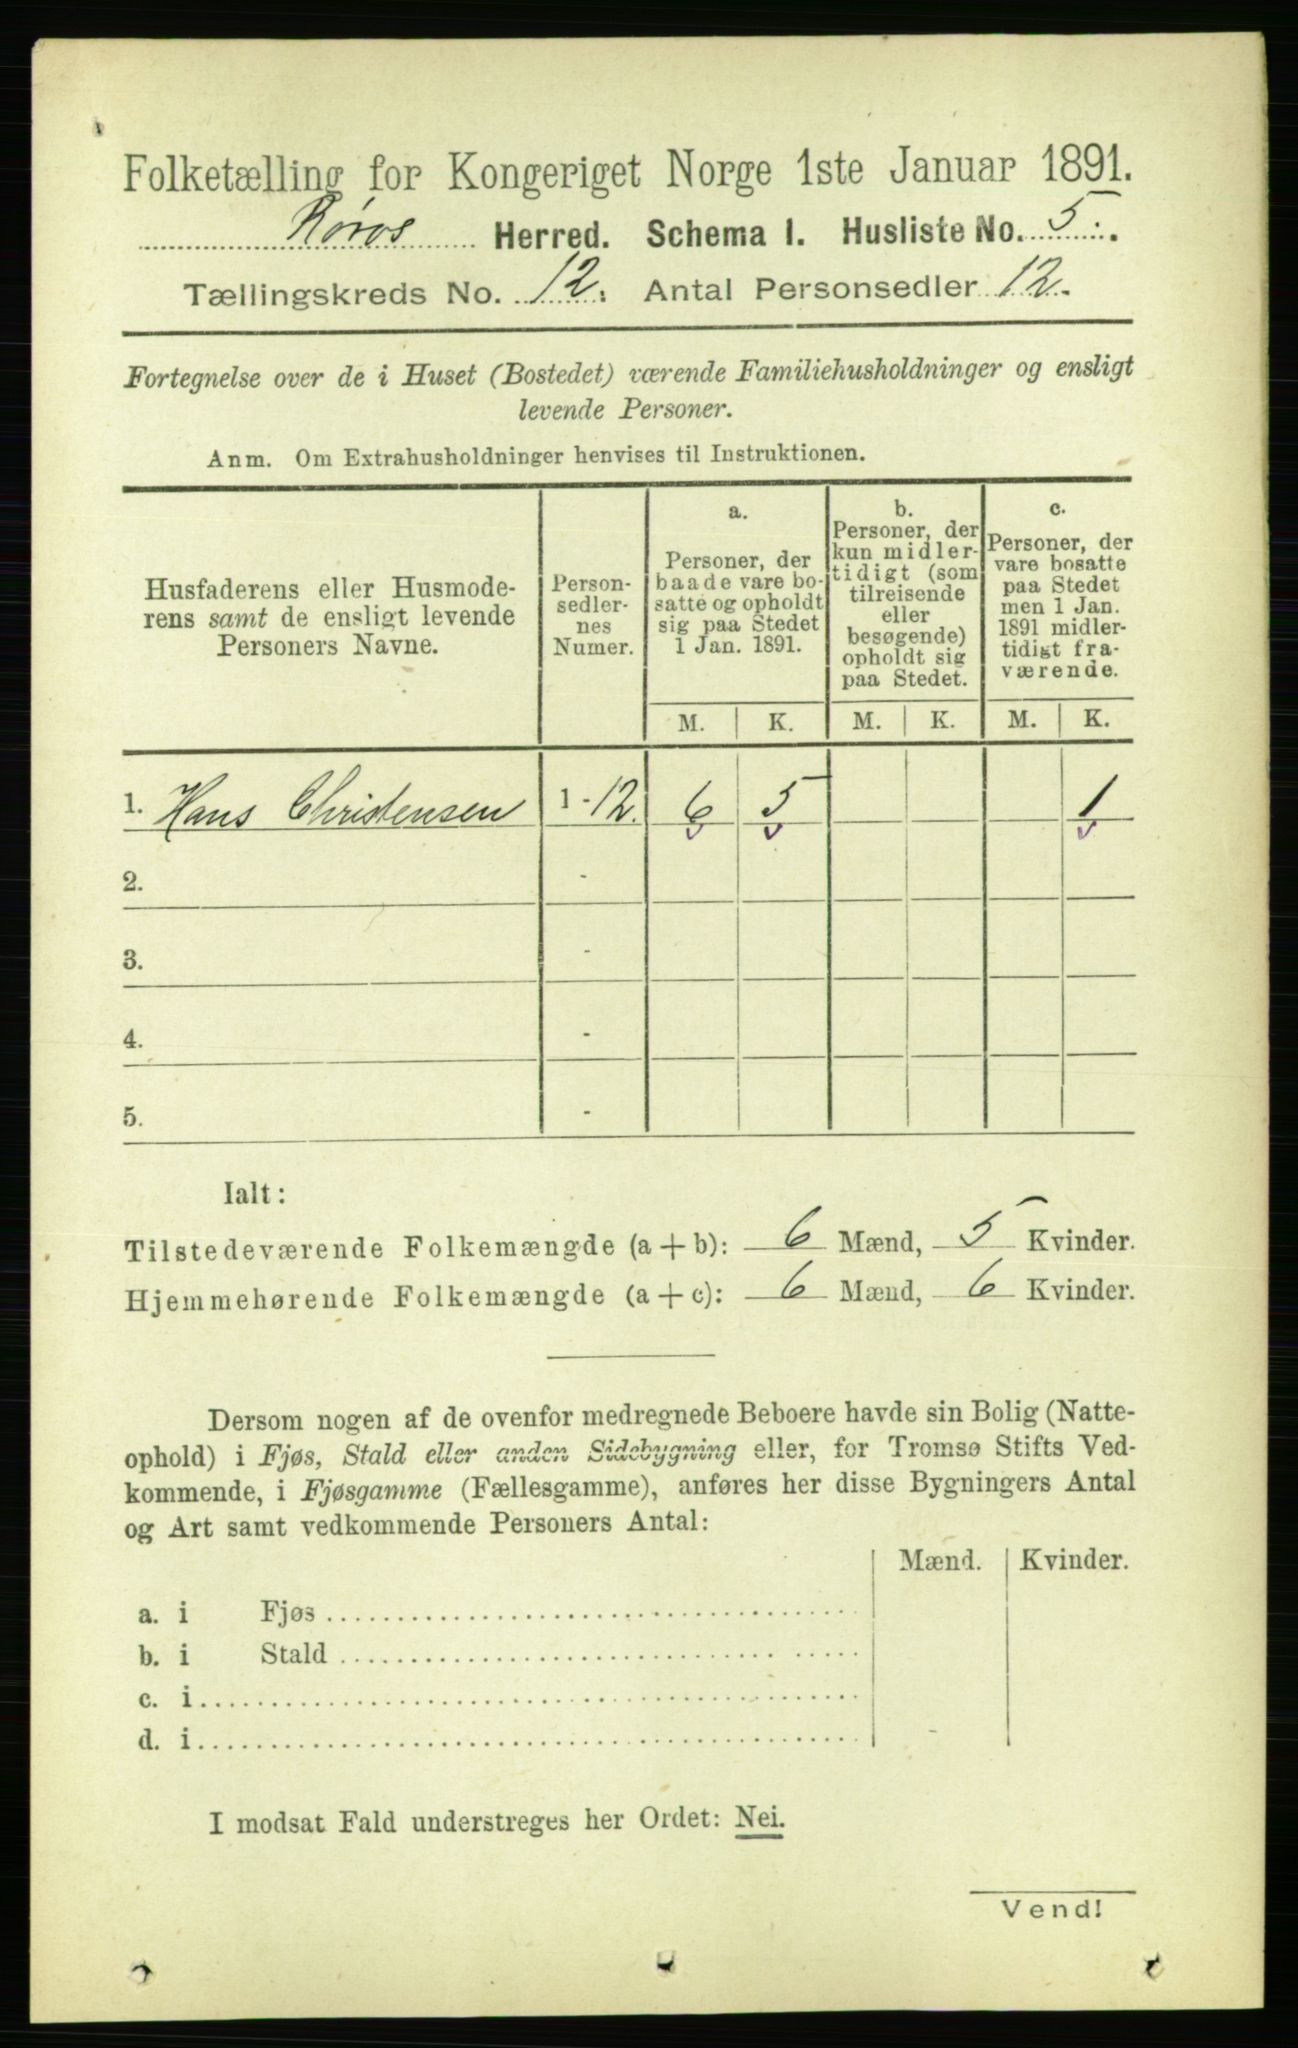 Folketælling for Kongeriget Norge 1ste Januar 1891.
Røros Herred. Schema I. Husliste No. 5.
Tællingskreds No. 12. Antal Personsedler 12.
Fortegnelse over de i Huset (Bostedet) værende Familiehusholdninger og ensligt
levende Personer.
Anm. Om Extrahusholdninger henvises til Instruktionen.
Husfaderens eller Husmode-
rens samt de ensligt levende
Personers Navne.
Person-
sedler-
nes
Numer.
a.
Personer, der
baade vare bo-
satte og opholdt
sig paa Stedet
1 Jan. 1891.
b.
Personer, der
kun midler-
tidigt (som
tilreisende
eller
besøgende)
opholdt sig
paa Stedet.
c.
Personer, der
vare bosatte
paa Stedet
men 1 Jan.
1891 midler-
tidigt fra-
værende.
M. K. M. K. M. K.
1. Hans Christensen 1 - 12. 6 5 1
2. -
3. -
4. -
5. -
Ialt:
Tilstedeværende Folkemængde (a + b): 6 Mænd, 5 Kvinder.
Hjemmehørende Folkemængde (a + c): 6 Mænd, 6 Kvinder.
Dersom nogen af de ovenfor medregnede Beboere havde sin Bolig (Natte-
ophold) i Fjøs, Stald eller anden Sidebygning eller, for Tromsø Stifts Ved-
kommende, i Fjøsgamme (Fællesgamme), anføres her disse Bygningers Antal
og Art samt vedkommende Personers Antal:
Mænd. Kvinder.
a. i Fjøs
b. i Stald
c. i
d. i
I modsat Fald understreges her Ordet: Nei.
Vend!